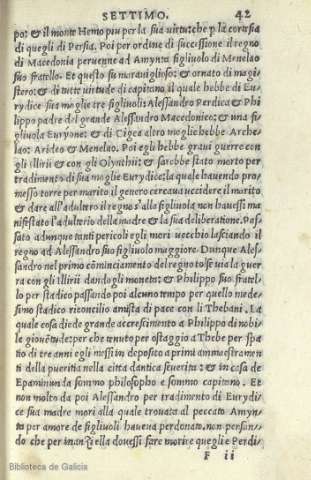 SETTIMO. 42
po: & il monte Hemo piu per la sua uirtu: che p la cortesia
di quegli di Persia. Poi per ordine di successione il regno
di Macedonia peruenne ad Amynta figliuolo di Menelao
suo fratello. Et questo fu marauiglioso: & ornato di magi
stero: & di tutte uirtude di capitano, il quale hebbe di Eu-
rydice sua moglie tre figliuoli: Alessandro Perdica & Phi
lippo padre del grande Alessandro Macedonico: & una fi
gliuola Euryone: & di Cigea altro moglie hebbe Arche-
lao: Arideo & Menelao. Poi egli hebbe graui guerre con
gli Illirii & con gli Olynthii: & sarebbe stato morto per
tradimento di sua moglie Eurydice: la quale hauendo pro-
messo torre per marito il genero cercaua uccidere il marito
& dare all'adultero il regno s'alla figliuola non hauessi ma
nifestato l'adulterio della madre & la sua deliberatione. Pas
sato adunque tanti pericoli egli mori uecchio lasciando il
regno ad Alessandro suo figliuolo maggiore. Dunque Ales-
sandro nel primo cōminciamento del regno tolse uia la guer
ra con gli Illirii dando gli moneta: & Philippo suo fratel-
lo per stadico passando poi alcuno tempo per quello mede-
simo stadico riconcilio amista di pace con li Thebani. La
quale cosa diede grande accrescimento a Philippo di nobi-
le giouētu: per che tenuto per ostaggio a Thebe per spa
tio di tre anni egli messi in deposito a primi ammostramen
ti della pueritia nella citta d'antica seuerita: & in casa de
Epaminunda sommo philosopho e sommo capitano. Et
non molto da poi Alessandro per tradimento di Eurydi
ce sua madre mori alla quale trouata al peccato Amyn-
ta per amore de figliuoli haueua perdonato. non pensan-
do che per inanzi ella douessi fare morire quegli e Perdi-
F ii
Biblioteca de Galicia